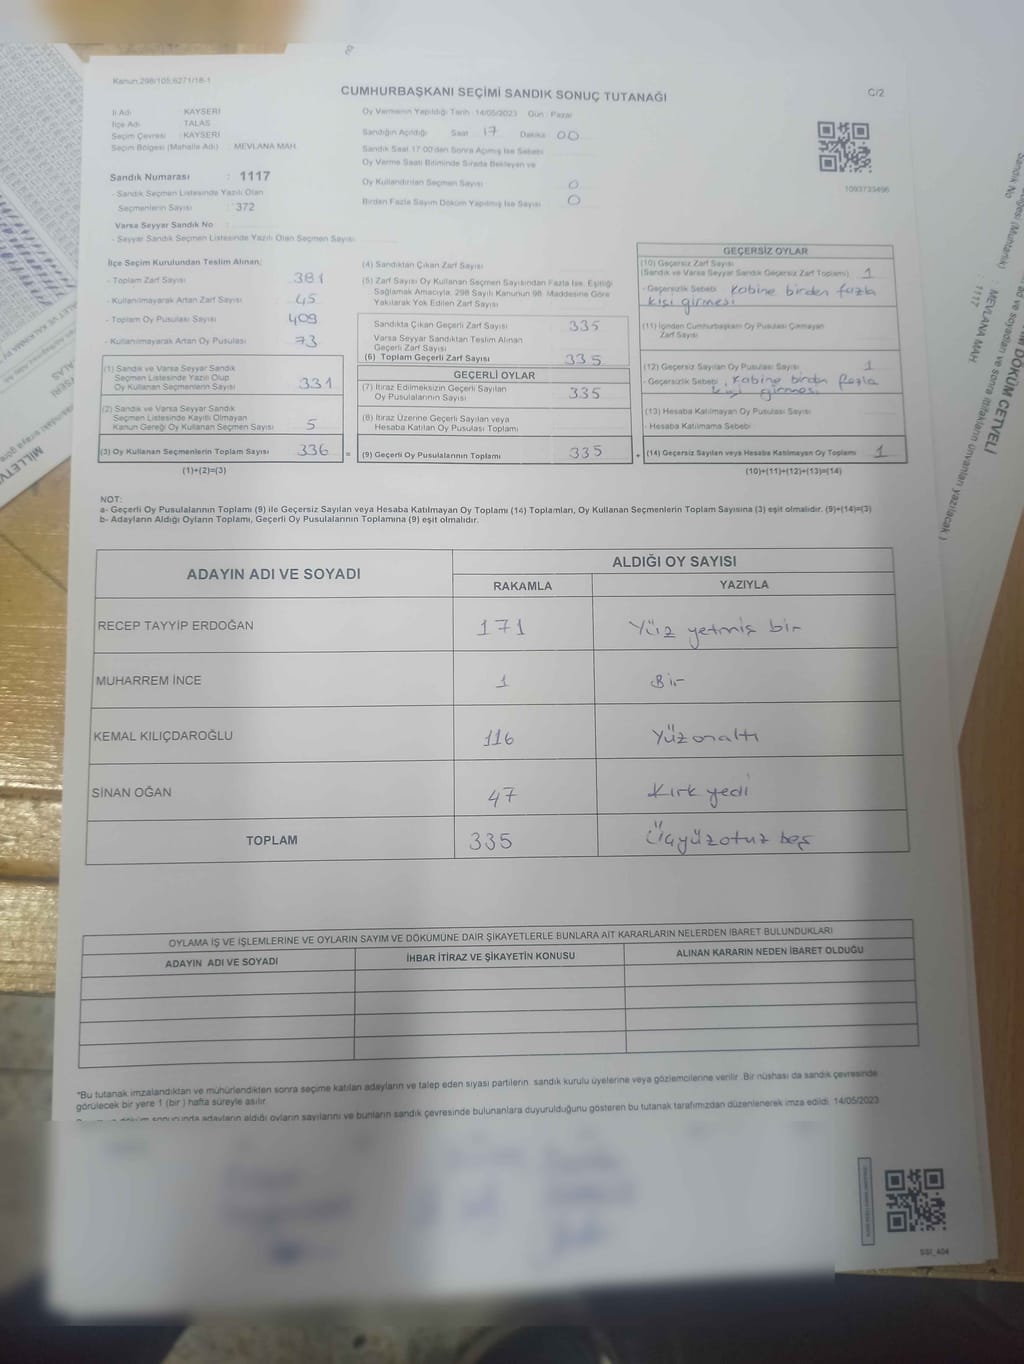 Kanun:298/105;6271/18-1
CUMHURBAŞKANI SEÇİMİ SANDIK SONUÇ TUTANAĞI
C/2
İl Adı : KAYSERİ
İlçe Adı : TALAS
Seçim Çevresi : KAYSERİ
Seçim Bölgesi (Mahalle Adı) : MEVLANA MAH.
Sandık Numarası : 1117
- Sandık Seçmen Listesinde Yazılı Olan
Seçmenlerin Sayısı : 372
Varsa Seyyar Sandık No :
- Seyyar Sandık Seçmen Listesinde Yazılı Olan Seçmen Sayısı:
Oy Vermenin Yapıldığı Tarih : 14/05/2023 Gün : Pazar
Sandığın Açıldığı Saat 17 Dakika 00
Sandık Saat 17:00'den Sonra Açılmış İse Sebebi
Oy Verme Saati Bitiminde Sırada Bekleyen ve
Oy Kullandırılan Seçmen Sayısı 0
Birden Fazla Sayım Döküm Yapılmış İse Sayısı 0
1093733496
İlçe Seçim Kurulundan Teslim Alınan;
- Toplam Zarf Sayısı 381
- Kullanılmayarak Artan Zarf Sayısı 45
- Toplam Oy Pusulası Sayısı 409
- Kullanılmayarak Artan Oy Pusulası 73
(1) Sandık ve Varsa Seyyar Sandık
Seçmen Listesinde Yazılı Olup
Oy Kullanan Seçmenlerin Sayısı 331
(2) Sandık ve Varsa Seyyar Sandık
Seçmen Listesinde Kayıtlı Olmayan
Kanun Gereği Oy Kullanan Seçmen Sayısı 5
(3) Oy Kullanan Seçmenlerin Toplam Sayısı 336
(1)+(2)=(3)
(4) Sandıktan Çıkan Zarf Sayısı
(5) Zarf Sayısı Oy Kullanan Seçmen Sayısından Fazla İse, Eşitliği
Sağlamak Amacıyla, 298 Sayılı Kanunun 98. Maddesine Göre
Yakılarak Yok Edilen Zarf Sayısı
Sandıkta Çıkan Geçerli Zarf Sayısı 335
Varsa Seyyar Sandıktan Teslim Alınan
Geçerli Zarf Sayısı
(6) Toplam Geçerli Zarf Sayısı 335
GEÇERLİ OYLAR
(7) İtiraz Edilmeksizin Geçerli Sayılan
Oy Pusulalarının Sayısı 335
(8) İtiraz Üzerine Geçerli Sayılan veya
Hesaba Katılan Oy Pusulası Toplamı
= (9) Geçerli Oy Pusulalarının Toplamı 335
GEÇERSİZ OYLAR
(10) Geçersiz Zarf Sayısı
(Sandık ve Varsa Seyyar Sandık Geçersiz Zarf Toplamı) 1
- Geçersizlik Sebebi Kabine birden fazla
kişi girmesi
(11) İçinden Cumhurbaşkanı Oy Pusulası Çıkmayan
Zarf Sayısı
(12) Geçersiz Sayılan Oy Pusulası Sayısı 1
- Geçersizlik Sebebi Kabine birden fazla
kişi girmesi
(13) Hesaba Katılmayan Oy Pusulası Sayısı
- Hesaba Katılmama Sebebi
+ (14) Geçersiz Sayılan veya Hesaba Katılmayan Oy Toplamı 1
(10)+(11)+(12)+(13)=(14)
NOT:
a- Geçerli Oy Pusulalarının Toplamı (9) ile Geçersiz Sayılan veya Hesaba Katılmayan Oy Toplamı (14) Toplamları, Oy Kullanan Seçmenlerin Toplam Sayısına (3) eşit olmalıdır. (9)+(14)=(3)
b- Adayların Aldığı Oyların Toplamı, Geçerli Oy Pusulalarının Toplamına (9) eşit olmalıdır.
ADAYIN ADI VE SOYADI ALDIĞI OY SAYISI
RAKAMLA YAZIYLA
RECEP TAYYİP ERDOĞAN 171 Yüz yetmiş bir
MUHARREM İNCE 1 Bir
KEMAL KILIÇDAROĞLU 116 Yüzonaltı
SİNAN OĞAN 47 Kırk yedi
TOPLAM 335 Üçyüzotuz beş
OYLAMA İŞ VE İŞLEMLERİNE VE OYLARIN SAYIM VE DÖKÜMÜNE DAİR ŞİKAYETLERLE BUNLARA AİT KARARLARIN NELERDEN İBARET BULUNDUKLARI
ADAYIN ADI VE SOYADI İHBAR İTİRAZ VE ŞİKAYETİN KONUSU ALINAN KARARIN NEDEN İBARET OLDUĞU
*Bu tutanak imzalandıktan ve mühürlendikten sonra seçime katılan adayların ve talep eden siyasi partilerin sandık kurulu üyelerine veya gözlemcilerine verilir. Bir nüshası da sandık çevresinde
görülecek bir yere 1 (bir) hafta süreyle asılır.
sonucunda adayların aldığı oyların sayılarını ve bunların sandık çevresinde bulunanlara duyurulduğunu gösteren bu tutanak tarafımızdan düzenlenerek imza edildi. 14/05/2023
SSI_404
Sandık No : 1117
MEVLANA MAH.
DÖKÜM CETVELİ
ad ve soyadları ve sonra ittifakların ünvanları yazılacak )